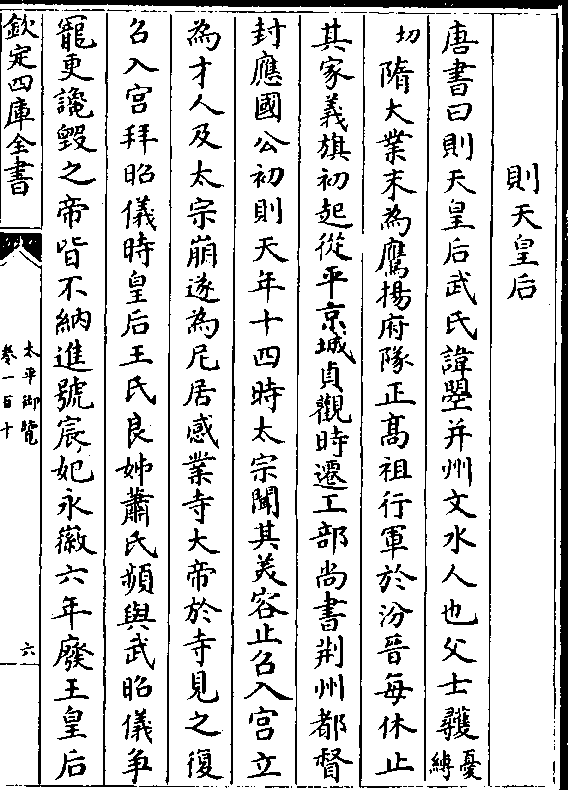 則天皇后
唐書曰則天皇后武氏諱曌并州文水人也父士彠憂縛
切隋大業末為鷹揚府隊正髙祖行軍於汾晉每休止
其家義旗初起從平京城貞觀時遷工部尚書荆州都督
封應國公初則天年十四時太宗聞其美容止召入宫立
為才人及太宗崩遂為尼居感業寺大帝於寺見之復
召入宫拜昭儀時皇后王氏良娣蕭氏頻與武昭儀争
寵更讒毀之帝皆不納進號宸妃永徽六年廢王皇后
欽定四庫全書
太平御覽
卷一百十
六